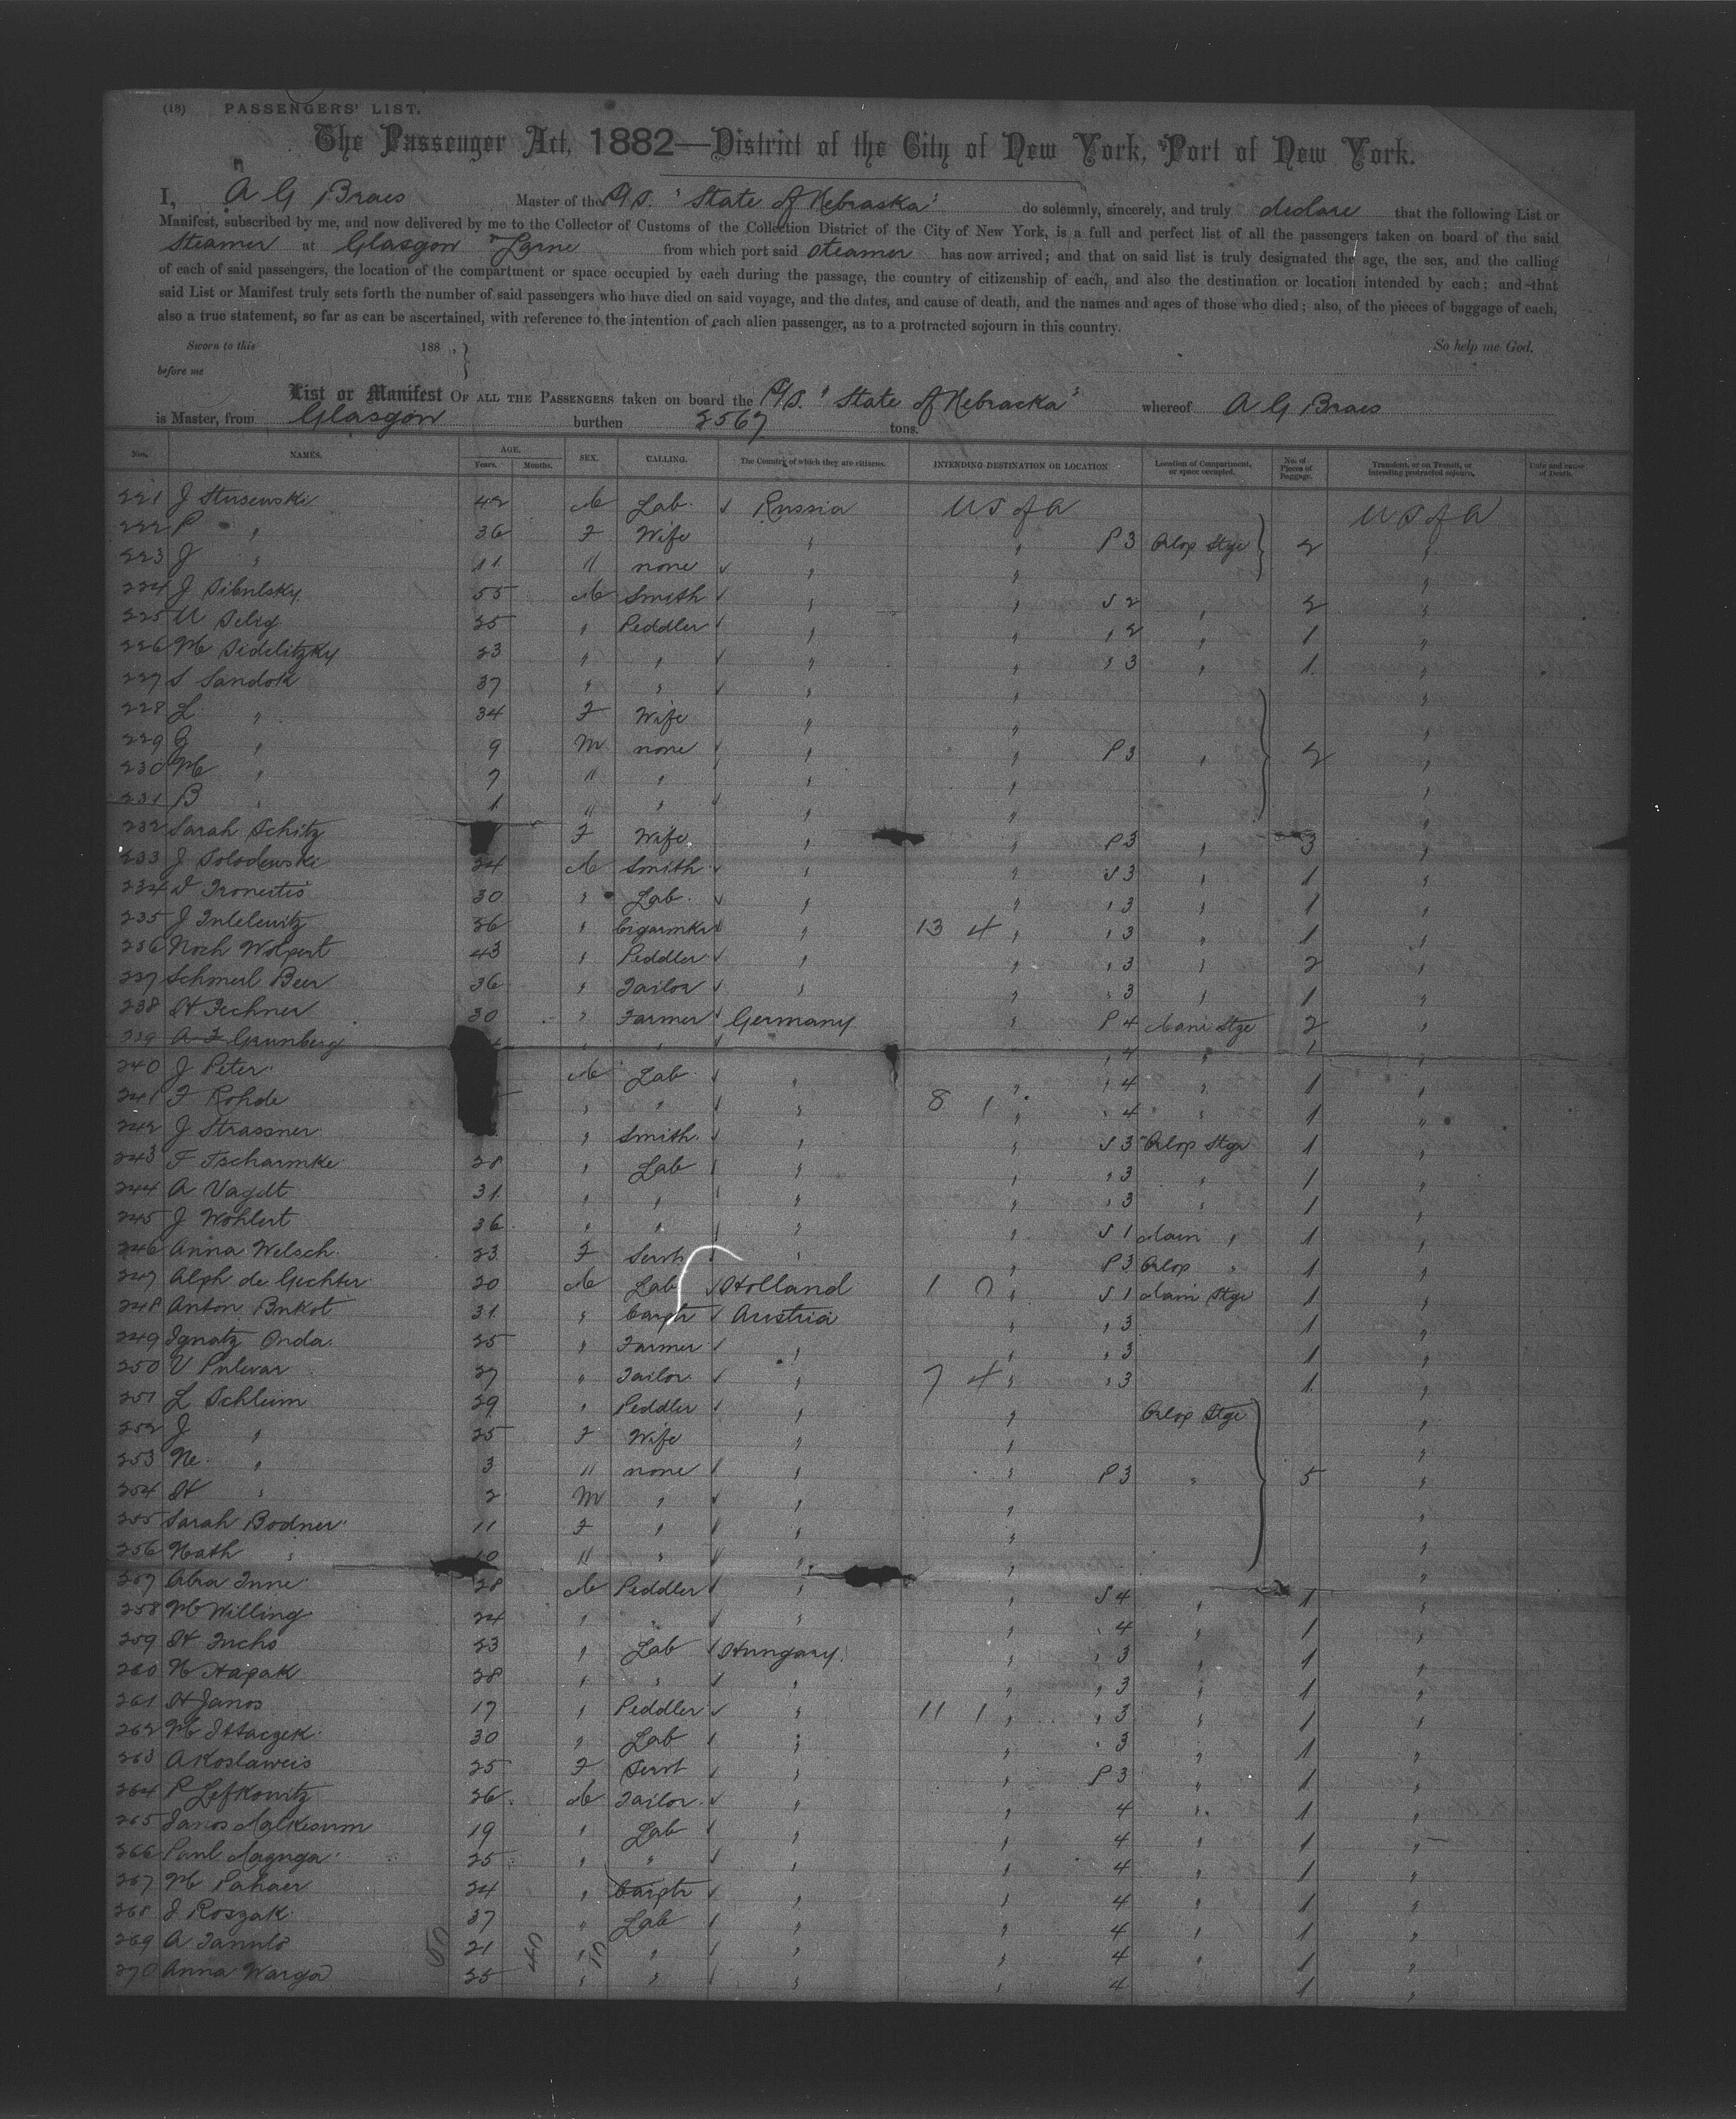 (13) PASSENGERS' LIST.
The Passenger Act, 1882—District of the City of New York, Port of New York.
I, A G Braes Master of the S.S. "State of Nebraska" do solemnly, sincerely, and truly declare that the following List or
Manifest, subscribed by me, and now delivered by me to the Collector of Customs of the Collection District of the City of New York, is a full and perfect list of all the passengers taken on board of the said
Steamer at Glasgow & Larne from which port said Steamer has now arrived; and that on said list is truly designated the age, the sex, and the calling
of each of said passengers, the location of the compartment or space occupied by each during the passage, the country of citizenship of each, and also the destination or location intended by each; and that
said List or Manifest truly sets forth the number of said passengers who have died on said voyage, and the dates, and cause of death, and the names and ages of those who died; also, of the pieces of baggage of each,
also a true statement, so far as can be ascertained, with reference to the intention of each alien passenger, as to a protracted sojourn in this country.
Sworn to this 188 , } So help me God.
before me
List or Manifest OF ALL THE PASSENGERS taken on board the S.S. "State of Nebraska" whereof A G Braes
is Master, from Glasgow burthen 2567 tons.
Nos. NAMES. AGE. Years. Months. SEX. CALLING. The Country of which they are citizens. INTENDING DESTINATION OR LOCATION Location of Compartment, or space occupied. No. of Pieces of Baggage. Transient, or on Transit, or intending protracted sojourn. Date and cause of Death.
221 J Stusewski 42 M Lab Russia U S of A U S of A
222 P " 36 F Wife " " P 3 Orlop Stge 2 "
223 J " 11 " none " " "
224 J Sibulsky 55 M Smith " " S 2 " 2 "
225 U Selig 25 " Peddler " " " 2 " 1 "
226 M Sidelitzky 23 " " " " " 3 " 1 "
227 S Sandok 37 " " " " "
228 L " 34 F Wife " " "
229 G " 9 M none " " P 3 " 2 "
230 M " 7 " " " " "
231 B " 1 " " " " "
232 Sarah Schitz F Wife " P 3 " 3 "
233 J Solodowski 24 M Smith " " S 3 " 1 "
234 Tronertis 30 " Lab " " " 3 " 1 "
235 J Intelewitz 36 " Cigarmkr " 13 4 " " 3 " 1 "
236 Noch Wolpert 43 " Peddler " " " 3 " 2 "
237 Schmerl Beer 36 " Tailor " " " 3 " 1 "
238 H Fechner 30 " Farmer Germany " P 4 Main Stge 2 "
239 A F Grunberg " " " 4 " 1 "
240 J Peter M Lab " " " 4 " 1 "
241 F Rohde " " " 8 1 " " 4 " 1 "
242 J Strassner " Smith " " S 3 Orlop Stge 1 "
243 F Tscharmke 28 " Lab " " " 3 " 1 "
244 A Vagdt 31 " " " " " 3 " 1 "
245 J Wohlert 36 " " " " S 1 Main " 1 "
246 Anna Welsch 23 F Servt " " P 3 Orlop " 1 "
247 Alph de Gechter 20 M Lab Holland 1 0 " S 1 Main Stge 1 "
248 Anton Bukot 31 " Carptr Austria " " 3 1 "
249 Ignatz Onda 25 " Farmer " " " 3 1 "
250 V Pulwar 27 " Tailor " 7 4 " " 3 1 "
251 L Schleim 29 " Peddler " " Orlop Stge "
252 J " 25 F Wife " " "
253 Ne " 3 " none " " P 3 " 5 "
254 H " 2 M " " " "
255 Sarah Bodner 11 F " " " "
256 Nath " 10 " " " " "
257 Abra Inne 28 M Peddler " " S 4 " 1 "
258 M Willing 24 " " " " " 4 " 1 "
259 H Inchs 23 " Lab Hungary " " 3 " 1 "
260 N Hapak 28 " " " " " 3 " 1 "
261 H Janos 17 " Peddler " 11 1 " " 3 " 1 "
262 M 30 " Lab " " " 3 " 1 "
263 A Koslaweis 25 F Servt " " P 3 " 1 "
264 P Lefkowitz 26 M Tailor " " 4 " 1 "
265 Janos 19 " Lab " " 4 " 1 "
266 Paul Magnga 25 " " " " 4 " 1 "
267 M Pahaer 24 " Carptr " " 4 " 1 "
268 J Roszak 37 " Lab " " 4 " 1 "
269 A Tannlo 21 " " " " 4 " 1 "
270 Anna Warga 25 " " " " 4 " 1 "